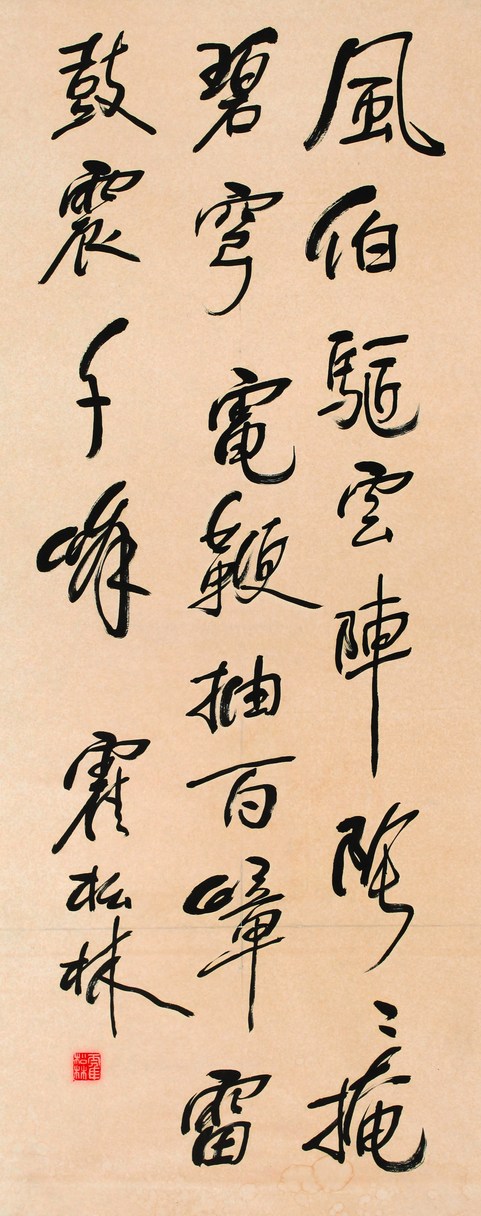 風伯驅雲陣陰〻掩
碧穹電鞭抽百嶂雷
鼓震千峰霍松林
霍松林